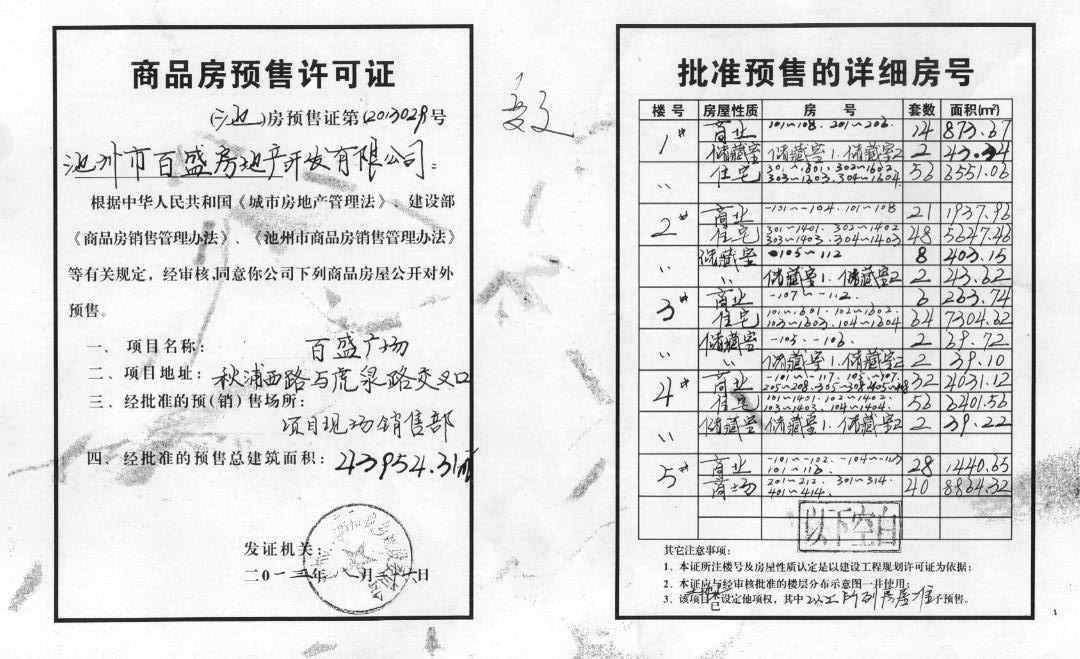 商品房预售许可证
(池)房预售证第(2013029号
池州市百盛房地产开发有限公司：
根据中华人民共和国《城市房地产管理法》、建设部
《商品房销售管理办法》、《池州市商品房销售管理办法》
等有关规定，经审核,同意你公司下列商品房屋公开对外
预售。
一、 项目名称： 百盛广场
二、项目地址： 秋浦西路与虎泉路交叉口
三、经批准的预(销)售场所：
项目现场销售部
四、经批准的预售总建筑面积：43954.31㎡
发证机关：
二0一三年八月二十六日
批准预售的详细房号
楼号 房屋性质 房号 套数 面积(㎡)
1# 商业 101~108. 201~206. 14 873.67
储藏室 储藏室1. 储藏室2 2
〃 住宅 301~1601. 302~1602. 303~1603. 304~1604 56 6551.06
2# 商业 -101~-104. 101~108 21 1937.96
住宅 301~1401. 302~1402 303~1403. 304~1403 48 5647.46
〃 储藏室 105~112 8 403.15
〃 储藏室1. 储藏室2 2 43.62
3# 商业 -107~-112. 6 263.74
住宅 101~1601. 102~1602. 103~1603. 104~1604 64 7304.62
〃 储藏室 -105. -106. 2 69.72
〃 储藏室1. 储藏室2 2 39.10
4# 商业 -101~-117. 105~107. 205~208. 305~308. 32 4031.12
住宅 101~1401. 102~1402. 103~1403. 104~1404. 56 6401.56
〃 储藏室 储藏室1. 储藏室2 2 39.22
5# 商业 -101~-102. -104~-113 101~116. 28 1440.65
商场 201~212. 301~314. 401~414. 40 8864.32
以下空白
其它注意事项：
1、本证所注楼号及房屋性质认定是以建设工程规划许可证为依据；
2、本证应与经审核批准的楼层分布示意图一并使用；
3、该项目 已设定他项权，其中以上所列房屋准予预售。